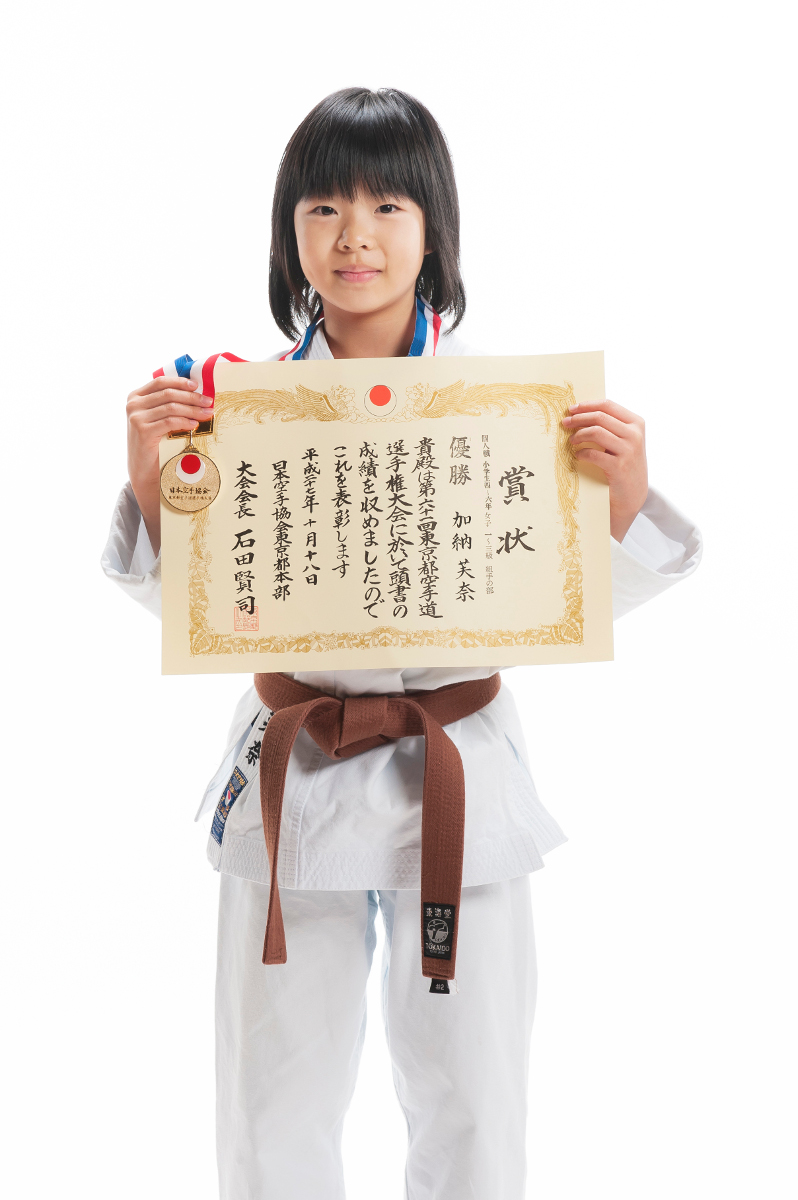 賞状
個人戦 小学生四・六年女子 一～三級 組手の部
優勝 加納 芙奈
貴殿は第六十一回東京都空手道
選手権大会に於いて頭書の
成績を収めましたので
これを表彰します
平成二十七年十月十八日
日本空手協会東京都本部
大会会長 石田賢司
日本空手協会
東海堂
TOKAIDO
#2